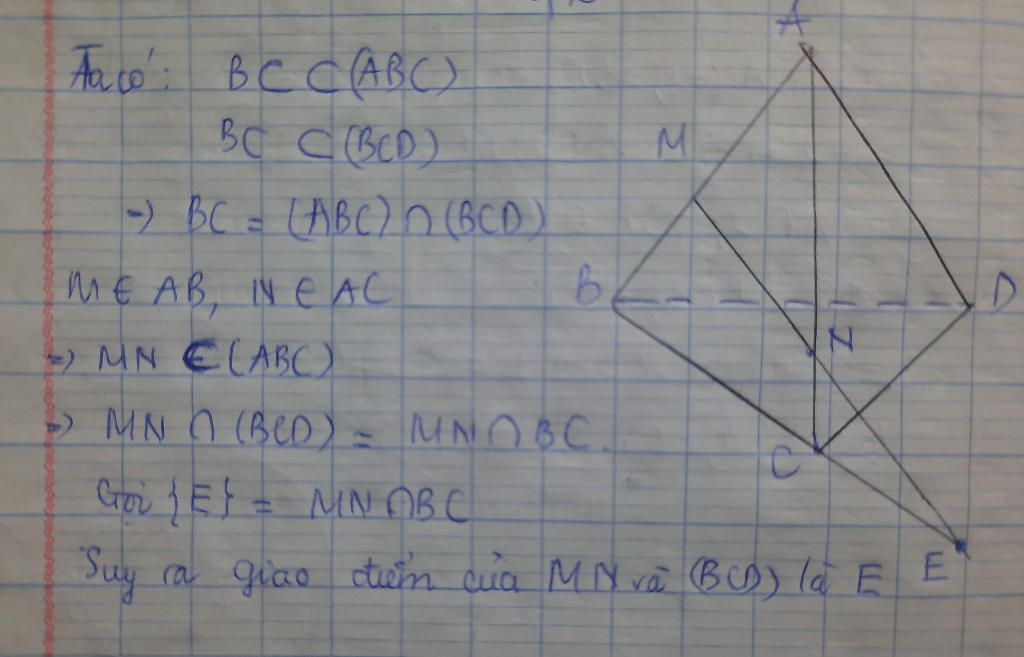 Ta có: BC ⊂ (ABC)
BC ⊂ (BCD)
→ BC = (ABC) ∩ (BCD)
M ∈ AB, N ∈ AC
=> MN ⊂ (ABC)
=> MN ∩ (BCD) = MN ∩ BC.
Gọi {E} = MN ∩ BC
Suy ra giao điểm của MN và (BCD) là E
A
M
B
D
N
C
E